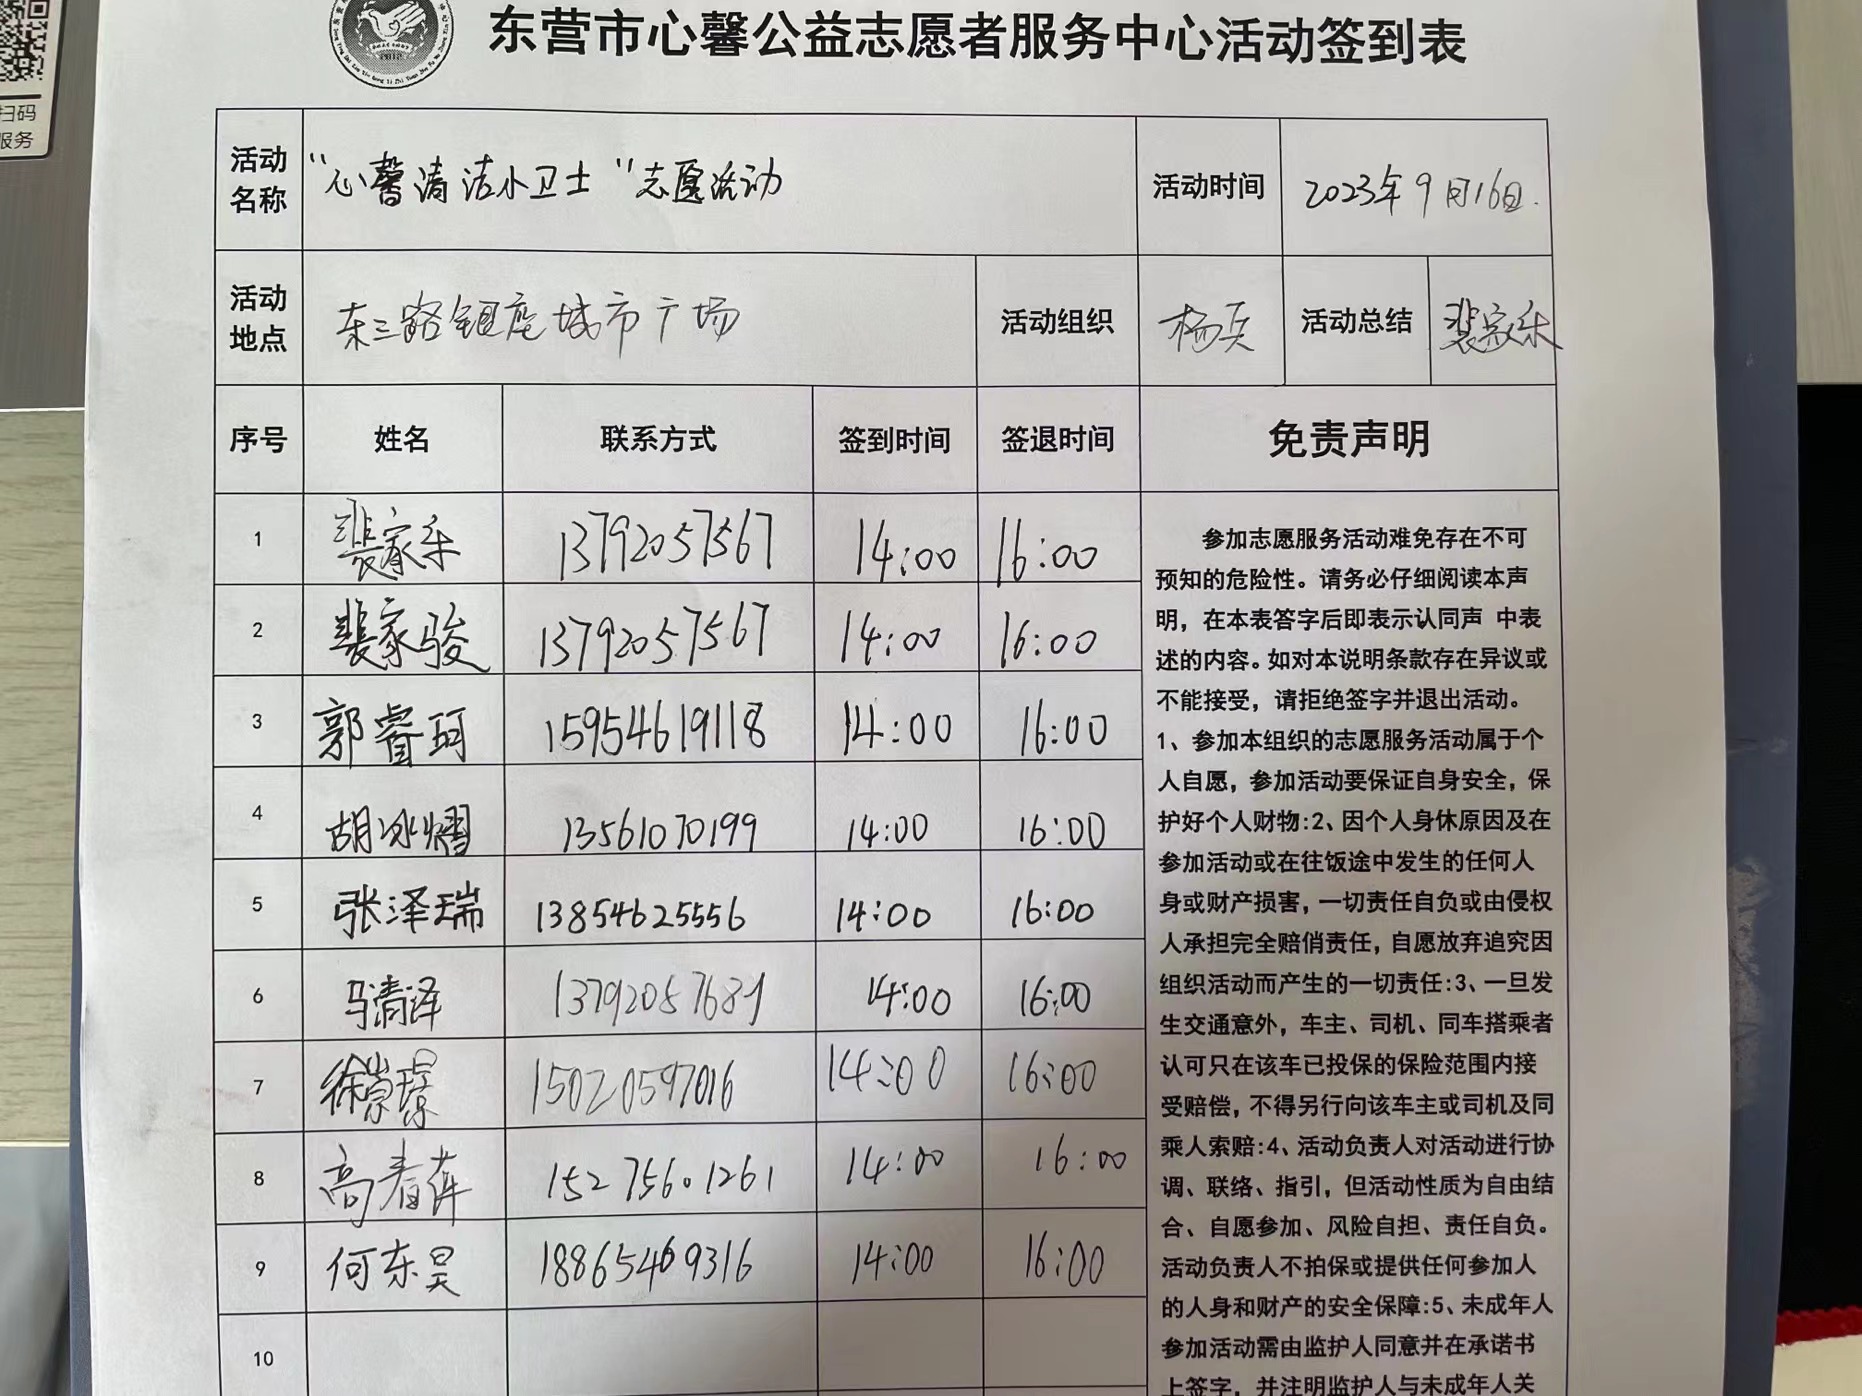 扫码
服务
东营市心馨公益志愿者服务中心活动签到表
活动名称 “心馨清洁小卫士”志愿活动 活动时间 2023年9月16日.
活动地点 东三路银座城市广场 活动组织 杨兵 活动总结 裴家乐
序号 姓名 联系方式 签到时间 签退时间 免责声明
1 裴家乐 13792057567 14:00 16:00
2 裴家骏 13792057567 14:00 16:00
3 郭睿珂 15954619118 14:00 16:00
4 胡冰熠 13561070199 14:00 16:00
5 张泽瑞 13854625556 14:00 16:00
6 马清泽 13792057689 14:00 16:00
7 徐崇璟 15020597016 14:00 16:00
8 高春莲 15275601261 14:00 16:00
9 何东昊 18865469316 14:00 16:00
10
参加志愿服务活动难免存在不可
预知的危险性。请务必仔细阅读本声
明，在本表答字后即表示认同声 中表
述的内容。如对本说明条款存在异议或
不能接受，请拒绝签字并退出活动。
1、参加本组织的志愿服务活动属于个
人自愿，参加活动要保证自身安全，保
护好个人财物:2、因个人身休原因及在
参加活动或在往饭途中发生的任何人
身或财产损害，一切责任自负或由侵权
人承担完全赔俏责任，自愿放弃追究因
组织活动而产生的一切责任:3、一旦发
生交通意外，车主、司机、同车搭乘者
认可只在该车已投保的保险范围内接
受赔偿，不得另行向该车主或司机及同
乘人索赔:4、活动负责人对活动进行协
调、联络、指引，但活动性质为自由结
合、自愿参加、风险自担、责任自负。
活动负责人不拍保或提供任何参加人
的人身和财产的安全保障:5、未成年人
参加活动需由监护人同意并在承诺书
上签字，并注明监护人与未成年人关